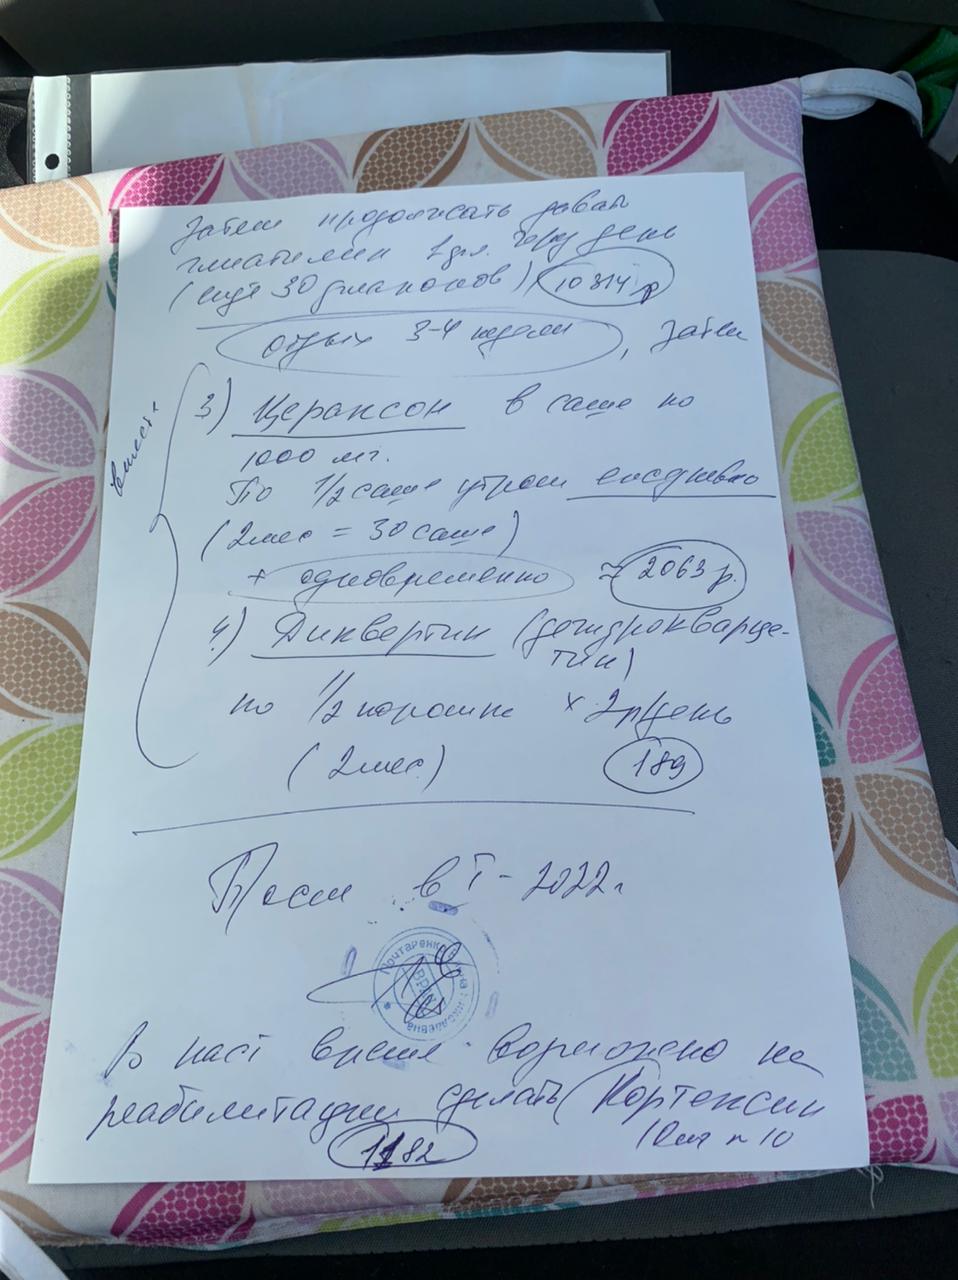 Затем продолжать давать
глиатилин 1 фл. через день
(ещё 30 флаконов) 10 314 р
отдых 3-4 недели, затем
вместе
3) Цераксон в саше по
1000 мг.
По 1/2 саше утром ежедневно
(2 мес = 30 саше)
+ одновременно ≈ 2063 р.
4) Диквертин (дегидрокверце-
тин)
по 1/2 порошка × 2 р/день
(2 мес.) 189
После в I - 2022 г
Почтаренко
ВРАЧ
В наст время возможно на
реабилитации сделать (Кортексин
10 мг n 10
1182